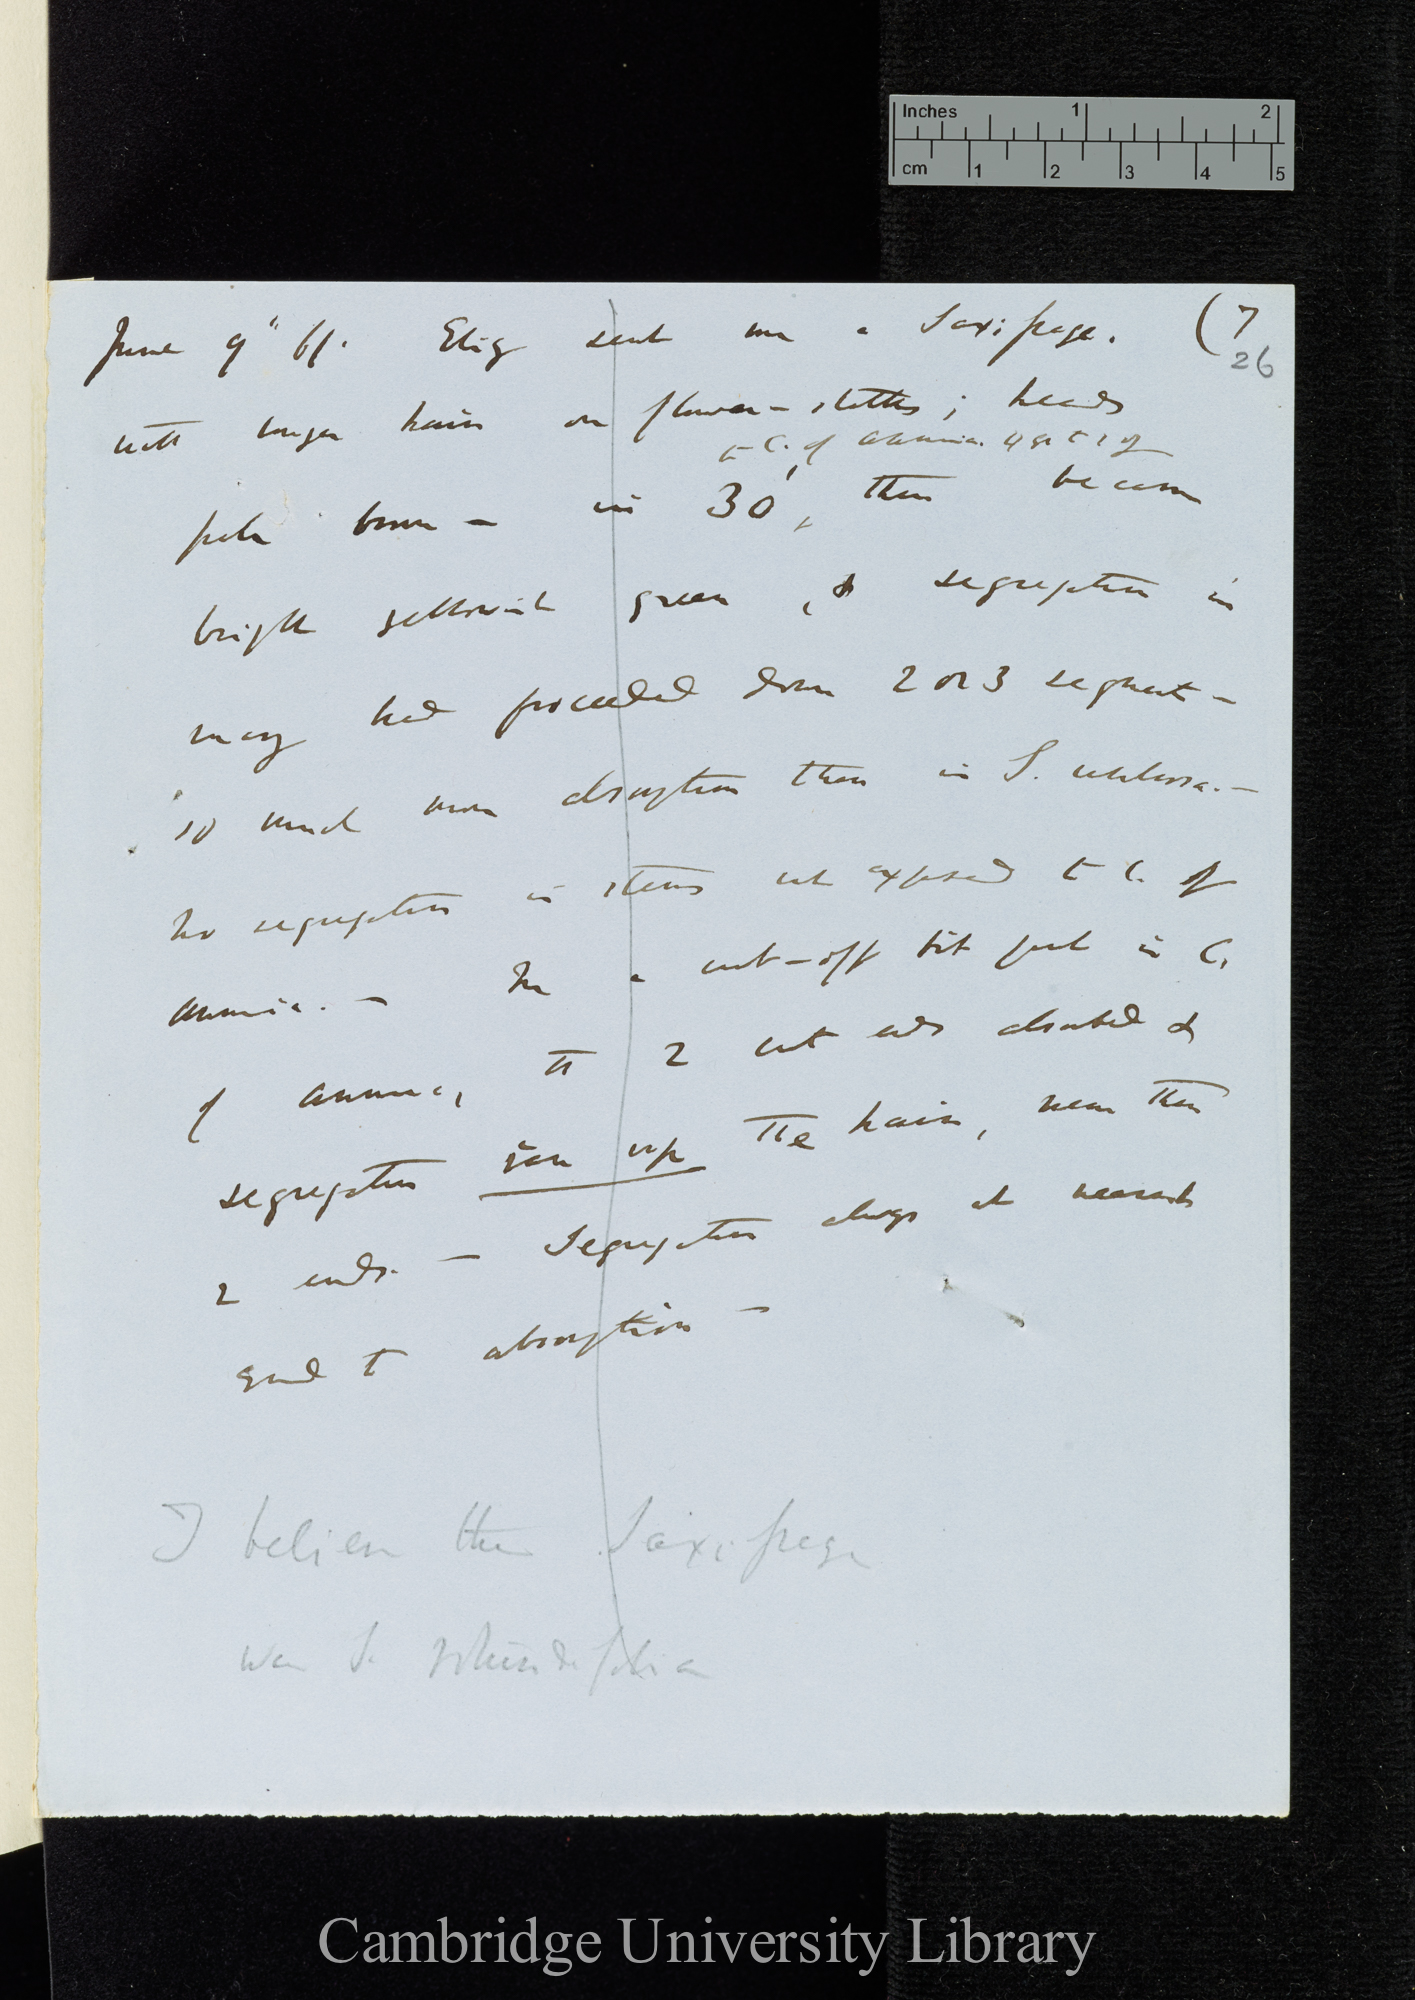 Inches 1 2
cm 1 2 3 4 5
June 9" 61. Eliz sent me a Saxifrage. (7
26
with longer hairs on flower-stalks; heads
to C. of Ammonia 4 gr to 1 oz
pale brown — in 30', these became
bright yellowish green, & segregation in
many had proceeded down 2 or 3 segment —
so much more absorption than in S. umbrosa. —
No segregation in stems not exposed to C. of
Ammonia. — In a cut-off bit put in C.
of ammonia, the 2 cut ends absorbed &
segregation ran up the hairs, near these
2 ends. — Segregation always at nearest
end to absorption —
I believe this Saxifrage
was S. rotundifolia
Cambridge University Library